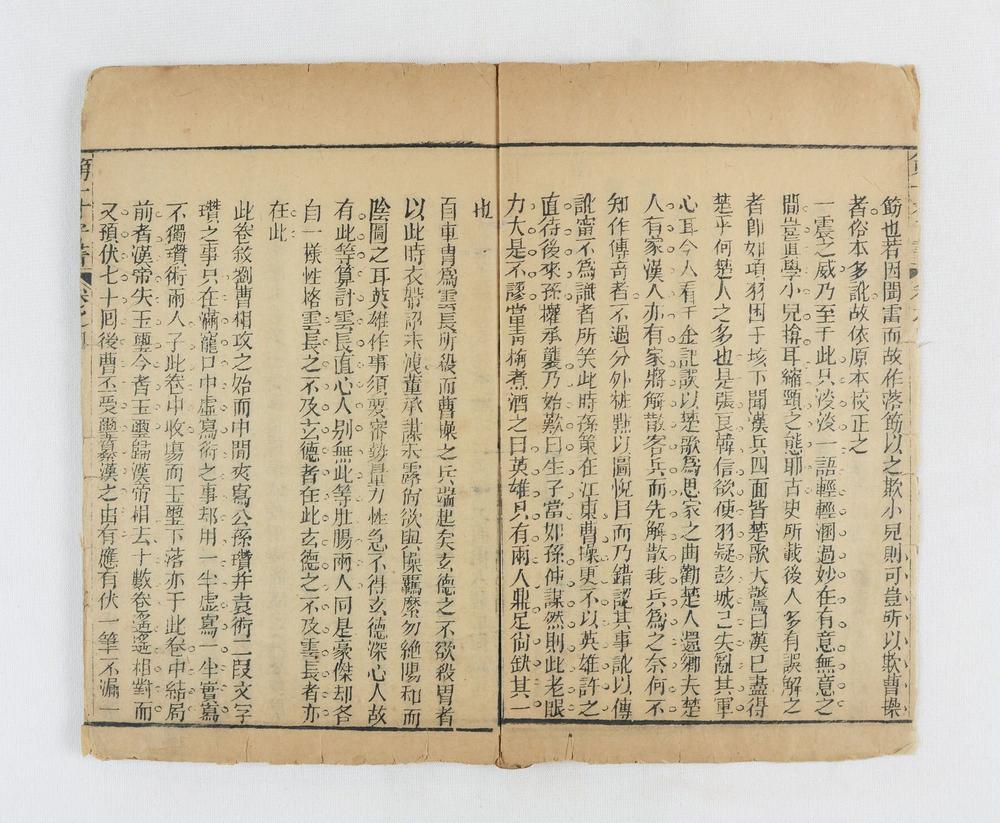 筯也若因聞雷而故作落筯以之欺小兒則可豈所以欺曹操
者俗本多訛故依原本校正之
一震之威乃至于此只淡淡一語輕輕溷過妙在有意無意之
間豈直學小兒揜耳縮頸之態耶古史所載後人多有誤解之
者卽如項羽困于垓下聞漢兵四面皆楚歌大驚曰漢已盡得
楚乎何楚人之多也是張良韓信欲使羽疑彭城已失亂其軍
心耳今人看千金記誤以楚歌爲思家之曲勸楚人還鄉夫楚
人有家漢人亦有家將解散客兵而先解散我兵爲之奈何不
知作傳奇者不過分外粧點以圖悅目而乃錯認其事訛以傳
訛寧不爲識者所笑此時孫策在江東曹操更不以英雄許之
直待後來孫權承襲乃始歎曰生子當如孫仲謀然則此老眼
力大是不謬當靑梅煮酒之日英雄只有兩人鼎足尙缺其一
也
百車冑爲雲長所殺而曹操之兵端起矣玄德之不欲殺冑者
以此時衣帶詔未洩董承謀未露尙欲與操羈縻勿絶陽和而
陰圖之耳英雄作事須要審勢量力性急不得玄德深心人故
有此等算計雲長直心人別無此等肚腸兩人同是豪傑却各
自一樣性格雲長之不及玄德者在此玄德之不及雲長者亦
在此
此卷敘劉曹相攻之始而中間夾寫公孫瓚并袁術二段文字
瓚之事只在滿寵口中虛寫術之事却用一半虛寫一半實寫
不獨瓚術兩人于此卷中收塲而玉璽下落亦于此卷中結局
前者漢帝失玉璽今者玉璽歸漢帝相去十數卷遙遙相對而
又預伏七十回後曹丕受璽篡漢之由有應有伏一筆不漏一